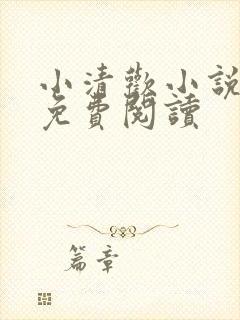 小清歡小說
免費閱讀
篇章